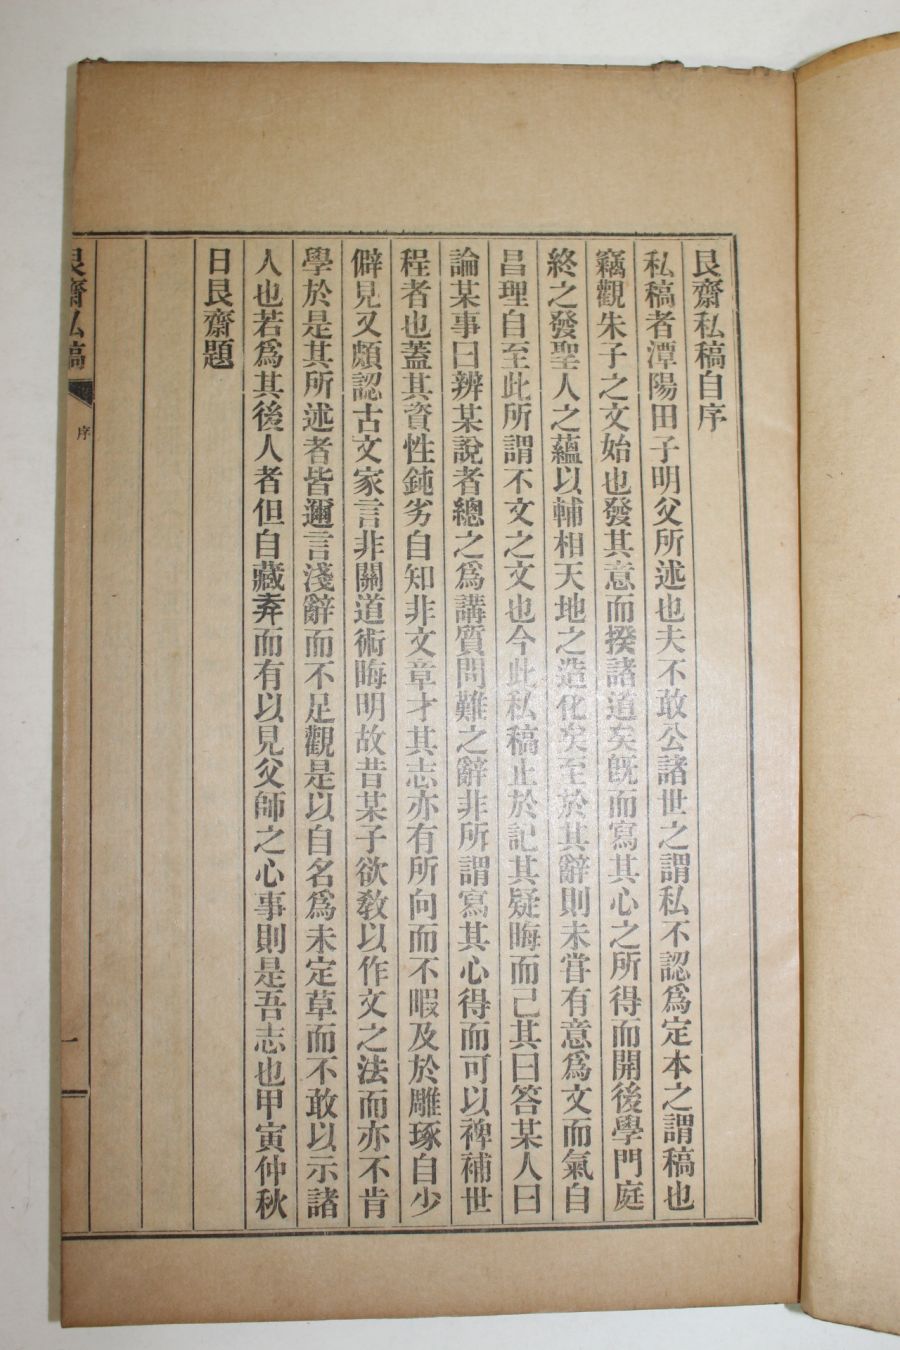 艮齋私稿自序
私稿者潭陽田子明父所述也夫不敢公諸世之謂私不認爲定本之謂稿也
竊觀朱子之文始也發其意而揆諸道矣旣而寫其心之所得而開後學門庭
終之發聖人之蘊以輔相天地之造化矣至於其辭則未甞有意爲文而氣自
昌理自至此所謂不文之文也今此私稿止於記其疑晦而己其曰答某人曰
論某事曰辨某說者總之爲講質問難之辭非所謂寫其心得而可以裨補世
程者也蓋其資性鈍劣自知非文章才其志亦有所向而不暇及於雕琢自少
僻見又頗認古文家言非關道術晦明故昔某子欲敎以作文之法而亦不肯
學於是其所述者皆邇言淺辭而不足觀是以自名爲未定草而不敢以示諸
人也若爲其後人者但自藏弆而有以見父師之心事則是吾志也甲寅仲秋
日艮齋題
艮齋私稿
序
一